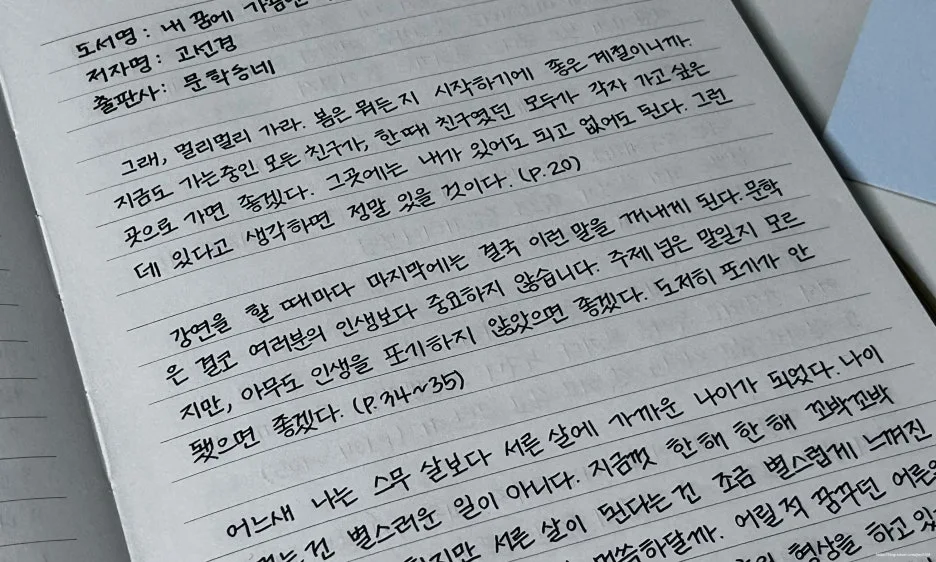 도서명 : 내 꿈에 가끔만
저자명 : 고선경
출판사 : 문학동네
그래, 멀리멀리 가라. 봄은 뭐든지 시작하기에 좋은 계절이니까.
지금도 가는중인 모든 친구가, 한때 친구였던 모두가 각자 가고 싶은
곳으로 가면 좋겠다. 그곳에는 내가 있어도 되고 없어도 된다. 그런
데 있다고 생각하면 정말 있을 것이다. (p.20)
강연을 할 때마다 마지막에는 결국 이런 말을 꺼내게 된다. 문학
은 결코 여러분의 인생보다 중요하지 않습니다. 주제 넘은 말일지 모르
지만, 아무도 인생을 포기하지 않았으면 좋겠다. 도저히 포기가 안
됐으면 좋겠다. (p.34~35)
어느새 나는 스무 살보다 서른 살에 가까운 나이가 되었다. 나이
먹는건 별스러운 일이 아니다. 지금껏 한 해 한 해 꼬박꼬박
하지만 서른 살이 된다는건 조금 별스럽게 느껴진
말씀하달까. 어릴적 꿈꾸던 어른의
형상을 하고 있